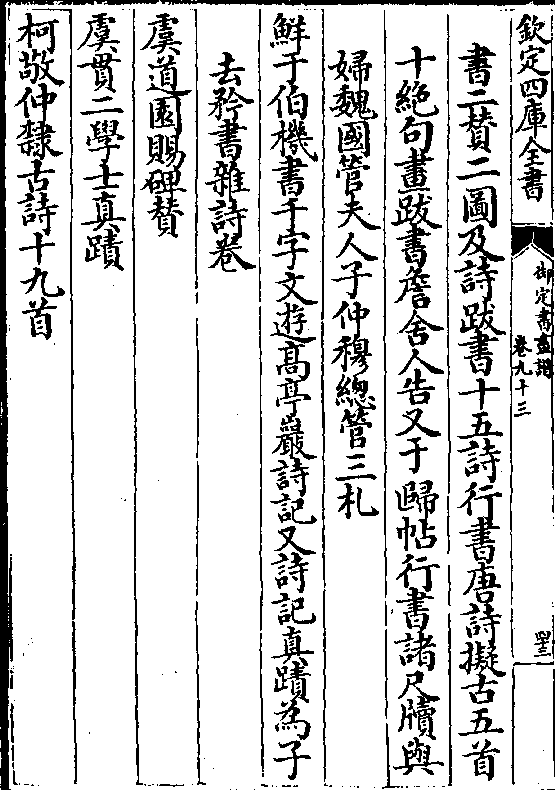 欽定四庫全書
御定書畫譜
卷九十三
四三
書二賛二圖及詩跋書十五詩行書唐詩擬古五首
十絶句畫跋書詹舍人告又于歸帖行書諸尺牘與
婦魏國管夫人子仲穆總管三札
鮮于伯機書千字文遊髙亭巖詩記又詩記真蹟為子
去矜書雜詩卷
虞道園賜碑賛
虞貫二學士真蹟
柯敬仲隸古詩十九首